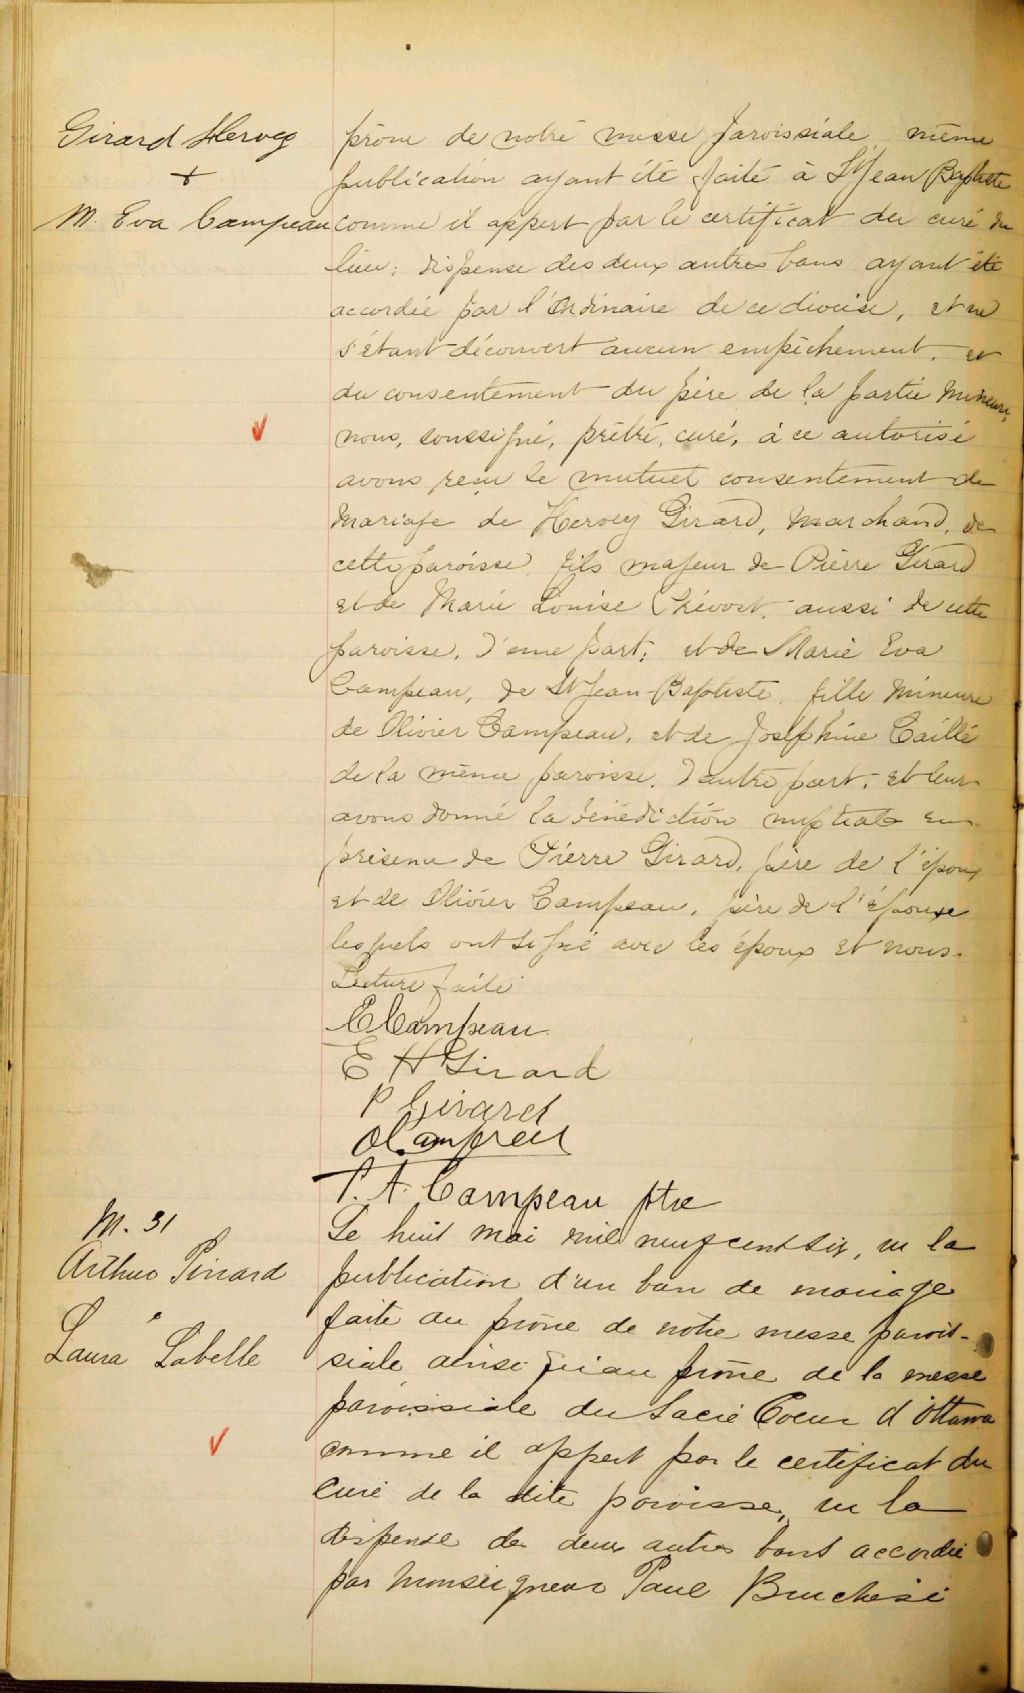 Girard Hervey
+
M. Eva Campeau
prône de notre messe paroissiale, même
publication ayant été faite à St Jean Baptiste
comme il appert par le certificat du curé du
lieu; dispense des deux autres bans ayant été
accordée par l'Ordinaire de ce diocèse, et ne
s'étant découvert aucun empêchement, et
du consentement du père de la partie mineure,
nous, soussigné, prêtre, curé, à ce autorisé
avons reçu le mutuel consentement de
mariage de Hervey Girard, marchand, de
cette paroisse, fils majeur de Pierre Girard
et de Marie Louise Prévost, aussi de cette
paroisse, d'une part; et de Marie Eva
Campeau, de St Jean-Baptiste, fille mineure
de Olivier Campeau, et de Joséphine Caillé
de la même paroisse, d'autre part; et leur
avons donné la bénédiction nuptiale en
présence de Pierre Girard, père de l'époux
et de Olivier Campeau, père de l'épouse
lesquels ont signé avec les époux et nous.
Lecture faite
E Campeau
E H Girard
P Girard
O Campeau
T. A. Campeau ptre
M. 31
Arthur Pinard
&
Laura Labelle
Le huit mai mil neuf cent six, vu la
publication d'un ban de mariage
faite au prône de notre messe parois-
siale ainsi qu'au prône de la messe
paroissiale du Sacré Coeur d'Ottawa
comme il appert par le certificat du
curé de la dite paroisse, vu la
dispense de deux autres bans accordée
par Monseigneur Paul Bruchési